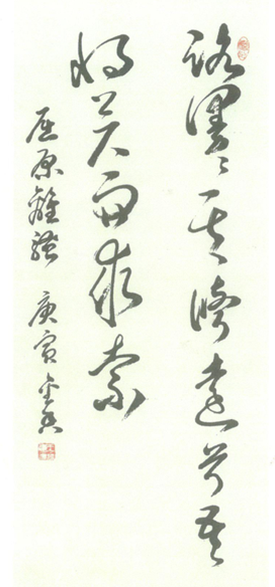 路漫漫其脩遠兮吾
将上下而求索
屈原離騷 庚寅